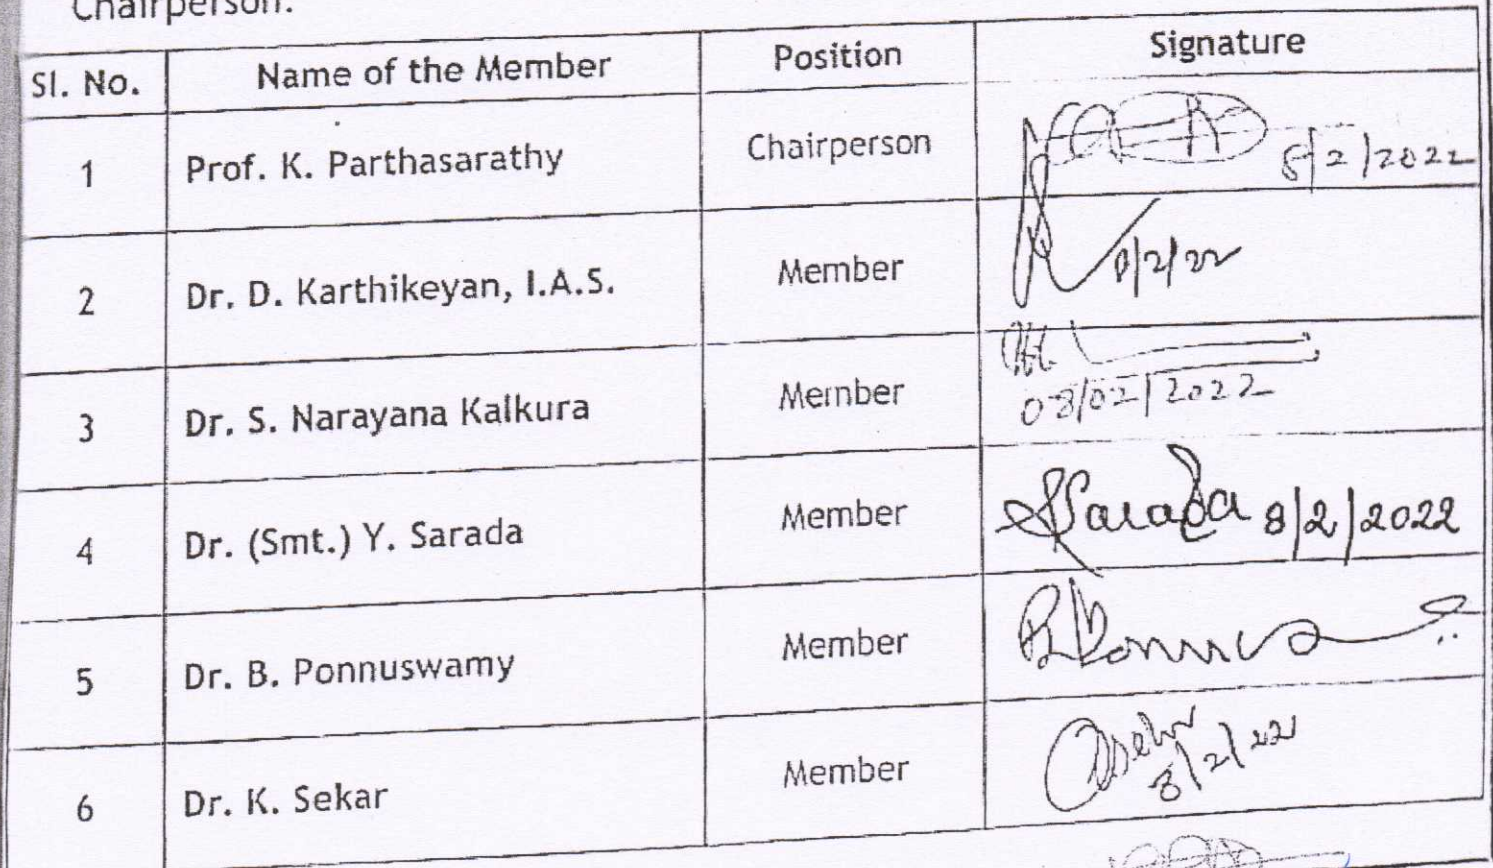 Chairperson.
Sl. No. Name of the Member Position Signature
1 Prof. K. Parthasarathy Chairperson 8/2/2022
2 Dr. D. Karthikeyan, I.A.S. Member 8/2/22
3 Dr. S. Narayana Kalkura Member
08/02/2022
4 Dr. (Smt.) Y. Sarada Member YSarada 8/2/2022
5 Dr. B. Ponnuswamy Member
6 Dr. K. Sekar Member
8/2/22